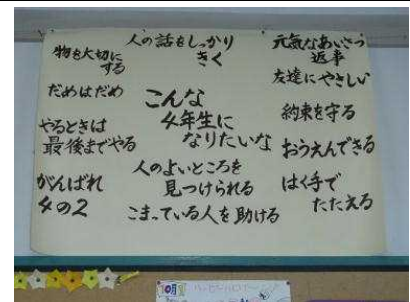 人の話をしっかり
きく
元気なあいさつ
返事
物を大切に
する
友達にやさしい
だめはだめ
こんな
4年生に
なりたいな
約束を守る
やるときは
最後までやる
おうえんできる
人のよいところを
見つけられる
がんばれ
4の2
はく手で
たたえる
こまっている人を助ける
10月